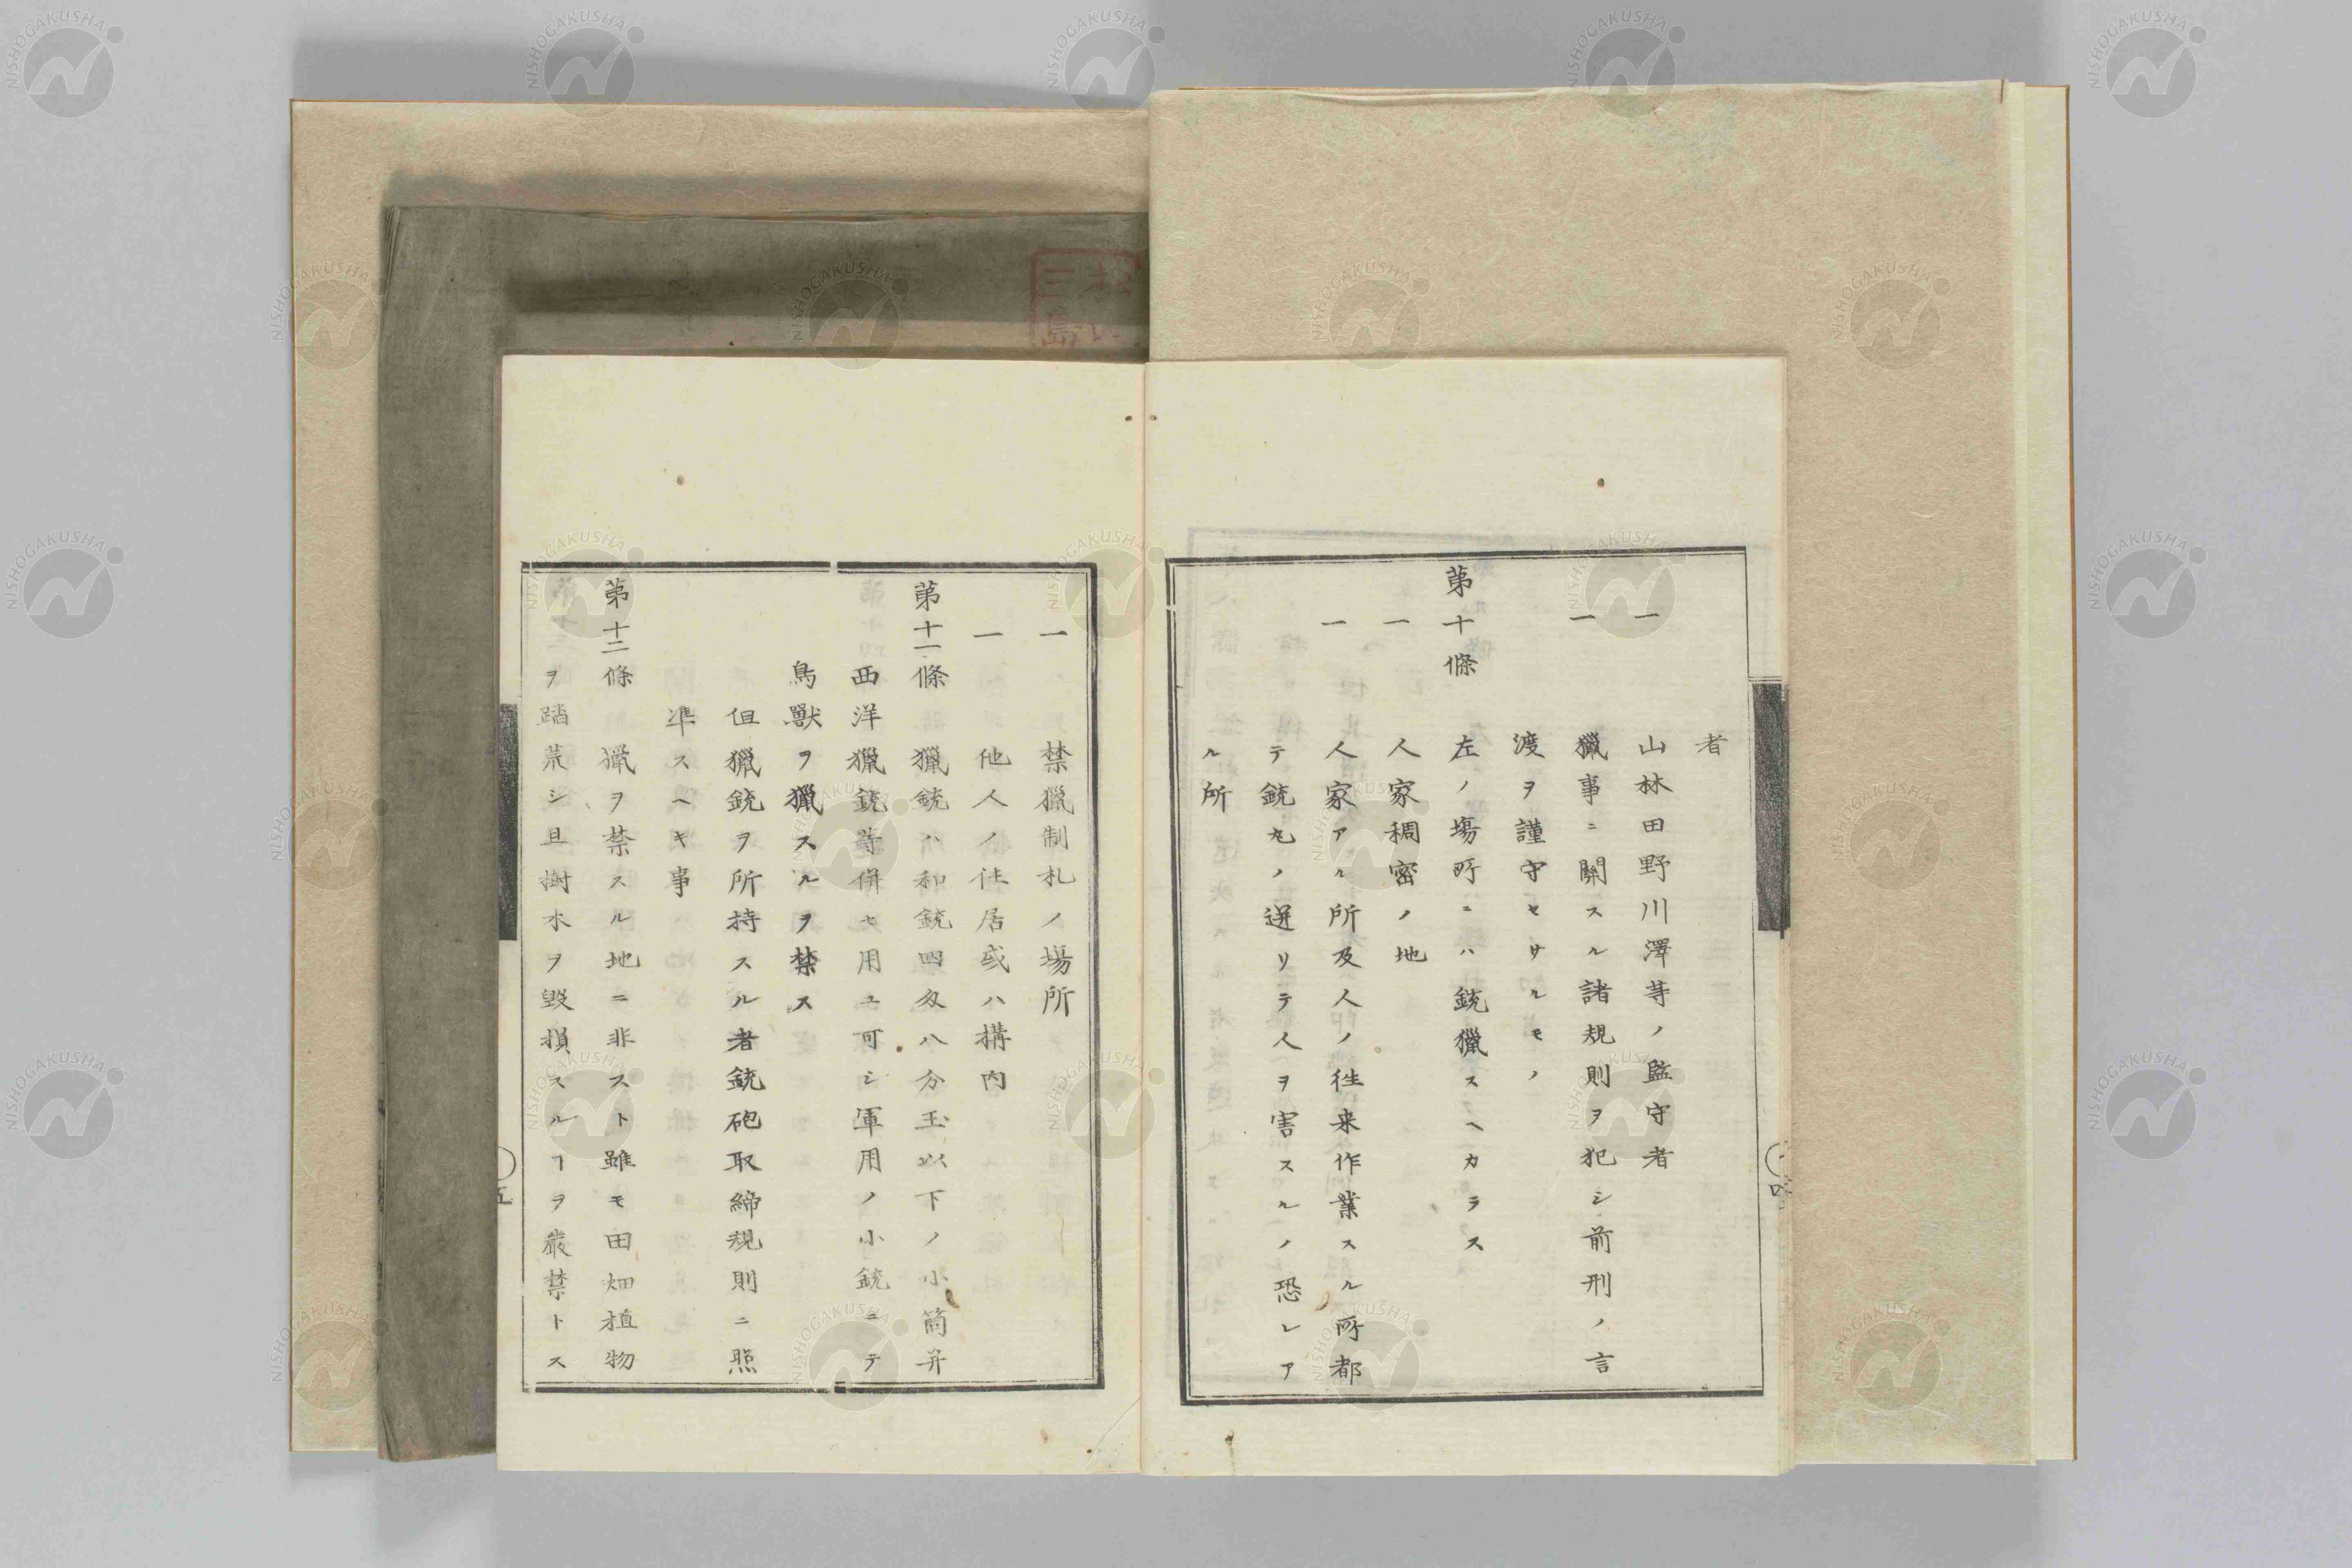 者
一 山林田野川澤等ノ監守者
一 獵事ニ關スル諸規則ヲ犯シ前刑ノ言
渡ヲ謹守セサルモノ
第十條 左ノ塲所ニハ銃獵スヘカラス
一 人家稠密ノ地
一 人家アル所及人ノ徃来作業スル所都
テ銃丸ノ迸リテ人ヲ害スルノ恐レア
ル所
四
一 禁獵制札ノ場所
一 他人ノ住居或ハ搆内
第十一條 獵銃ハ和銃四匁八分玉以下ノ小筒并
西洋獵銃等併セ用ユ可シ軍用ノ小銃ニテ
鳥獸ヲ獵スルヲ禁ス
但獵銃ヲ所持スル者銃砲取締規則ニ照
凖スヘキ事
第十二條 獵ヲ禁スル地ニ非スト雖モ田畑植物
ヲ踏荒シ且樹木ヲ毀損スルヿヲ嚴禁トス
五
三島
NISHOGAKUSHA